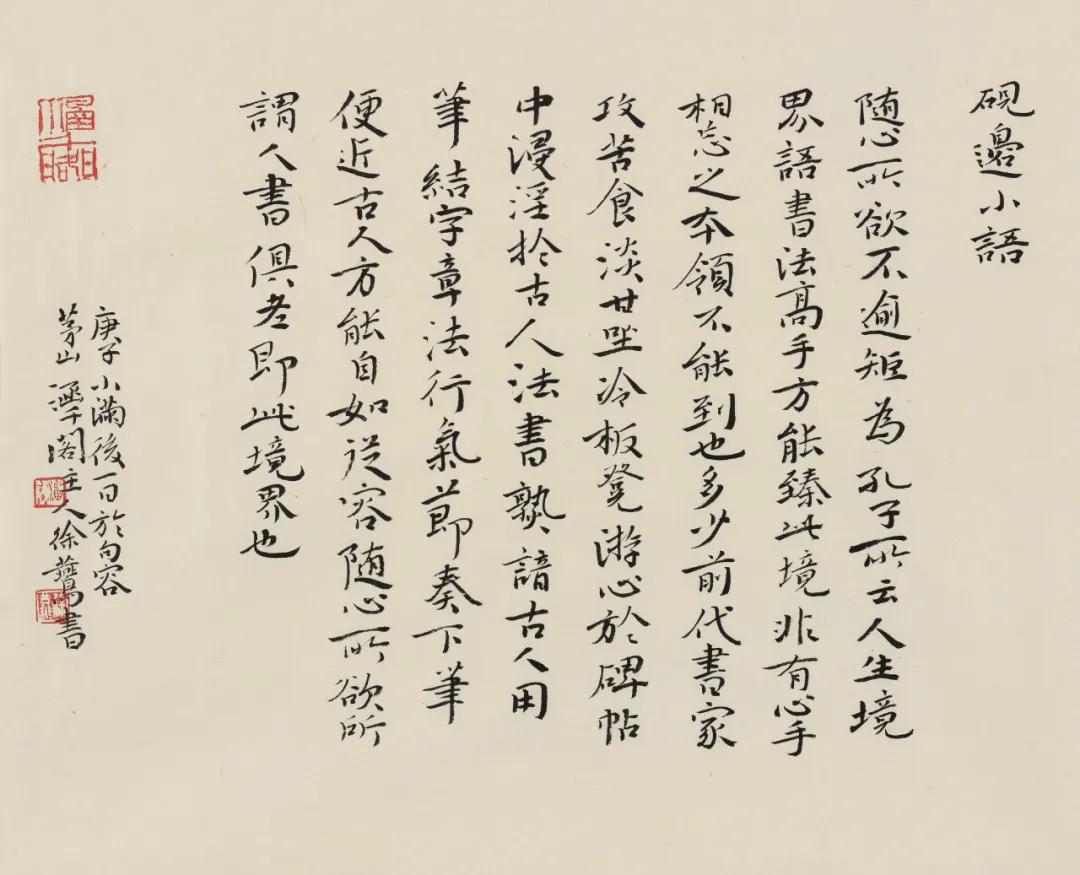 硯邊小語
随心所欲不逾矩為孔子所云人生境
界語書法高手方能臻此境非有心手
相忘之本領不能到也多少前代書家
攻苦食淡甘坐冷板凳游心於碑帖
中浸淫於古人法書熟諳古人用
筆結字章法行氣節奏下筆
便近古人方能自如從容随心所欲所
謂人書俱老即此境界也
庚子小滿後一日於句容
茅山涵千閣主人徐鷰書